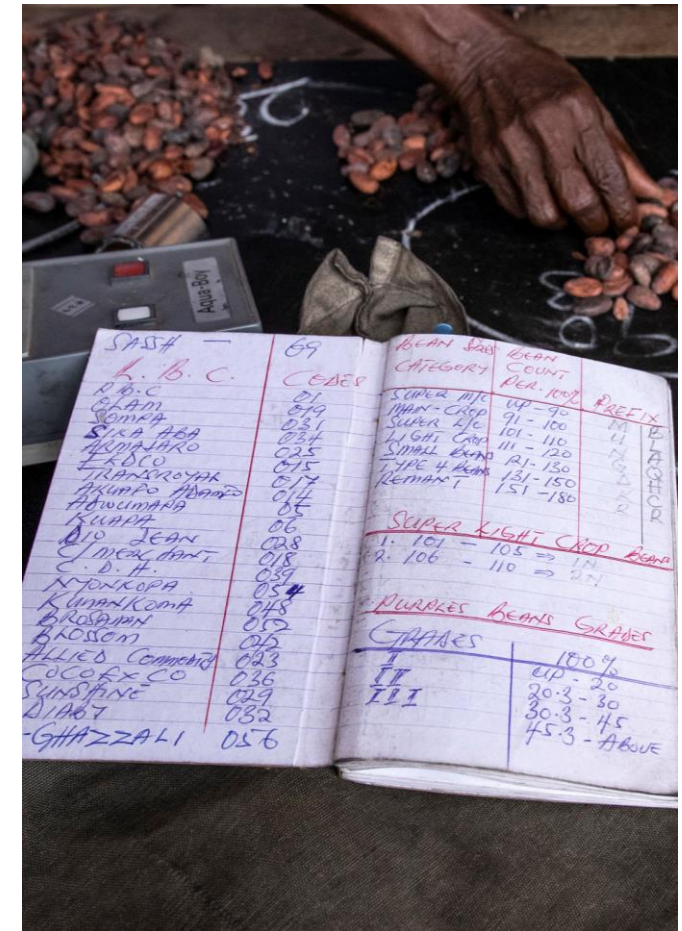 Aqua-Boy
SASSH — 69
L. B. C. CODES
P.B.C 01
OLAM 019
SOMPA 031
SIKA ABA 034
ARMAJARO 025
EROCO 015
TRANSROYAL 017
AKUAPO ADAMFO 014
ADWUMAPA 05
KUAPA 06
DIO JEAN 028
C/MERCHANT 018
C. D. H. 039
NYONKOPA 054
KUMANKOMA 048
BROSAMAN 052
BLOSSOM 042
ALLIED COMMODITIES 023
COCOEXCO 036
SUNSHINE 029
DIABY 032
-GHAZZALI 056
BEAN SIZES BEAN
CATEGORY COUNT
PER. 100% PREFIX
SUPER M/C UP - 90
MAIN-CROP 91 - 100
SUPER L/C 101 - 110
LIGHT CROP 111 - 120
SMALL BEANS 121 - 130
TYPE 4 BEANS 131 - 150
REMANT 151 - 180
SUPER LIGHT CROP BEANS
1. 101 - 105 ⇒ 1N
2. 106 - 110 ⇒ 2N
PURPLES BEANS GRADES
GRADES 100%
I UP - 20
II 20.3 - 30
III 30.3 - 45
45.3 - ABOVE